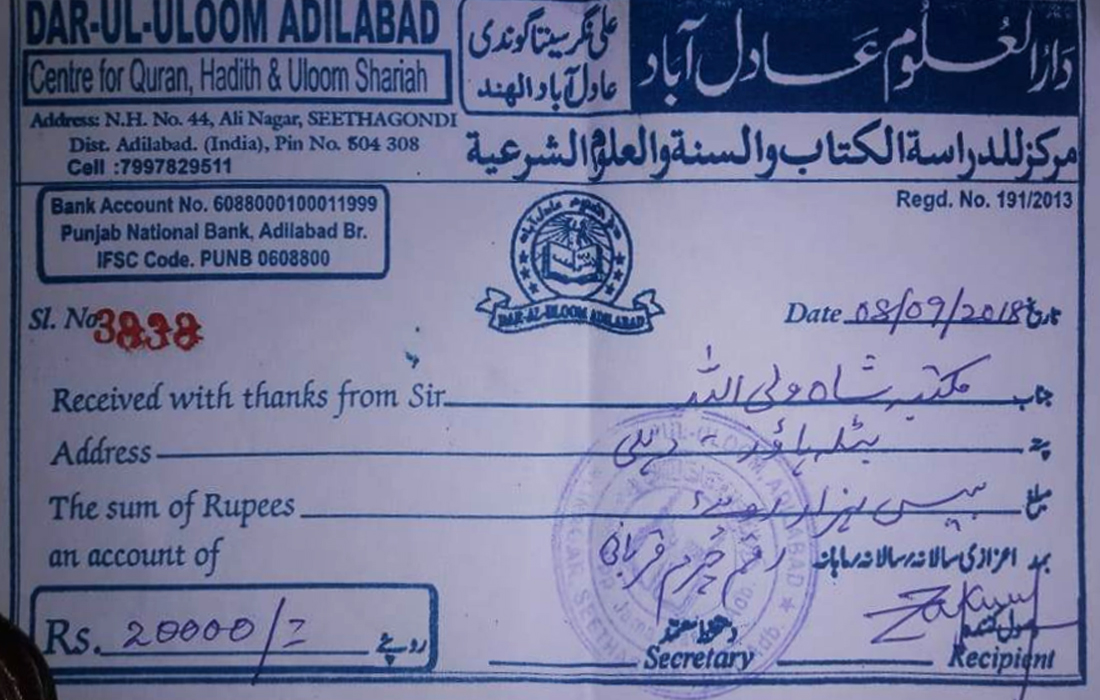 DAR-UL-ULOOM ADILABAD
علی نگر سیتاگوندی
عادل آباد الهند
دَارُالعُلُوم عَادل آباد
Centre for Quran, Hadith & Uloom Shariah
Address: N.H. No. 44, Ali Nagar, SEETHAGONDI
Dist. Adilabad. (India), Pin No. 504 308
Cell :7997829511
مركز للدراسة الكتاب والسنة والعلوم الشرعية
Bank Account No. 6088000100011999
Punjab National Bank, Adilabad Br.
IFSC Code. PUNB 0608800
Regd. No. 191/2013
DAR-AL-ULOOM ADILABAD
Sl. No 3838
Date 08/09/2018 تاریخ
Received with thanks from Sir مکتبہ شاہ ولی اللہ جناب
Address بٹلہ ہاؤز - دہلی پتہ
The sum of Rupees بیس ہزار روپیہ مبلغ
an account of رقم چرم قربانی بمد اعزازی سالانہ رسالانہ رماہانہ
Rs. 20000/= روپے
دستخط معتمد
Secretary
Zakir
وصول کنندہ
Recipient